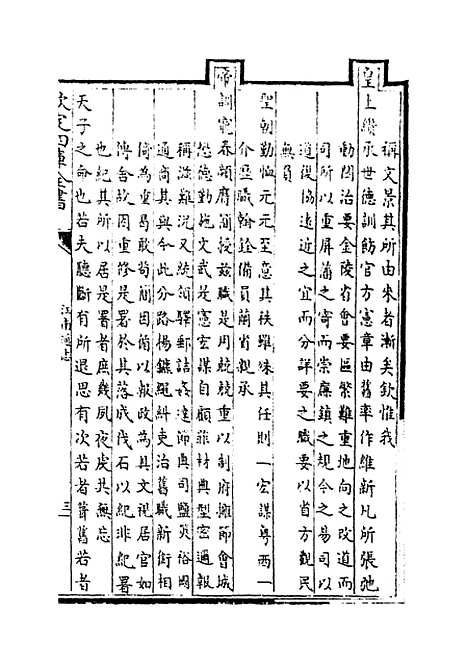 稱文景其所由來者漸矣欽惟我
皇上纘承世德訓飭官方憲章由舊率作維新凡所張弛
動關治要金陵省會要區繁難重地向之改道而
司所以重屏藩之寄而崇廉鎮之規今之易司以
道復協遠近之宜而分詳要之職要以首方觀民
無負
聖朝勤恤元元至意其秩雖殊其任則一宏謀粤西一
介臣職翰銓備員蘭省親承
帝訓寵春頻膺簡授兹職是用兢兢重以制府擁節會城
懋德勤施文武是憲宏謀自顧菲材典型宏邇報
稱滋難況又統領驛郵詰奸達節典司鹽筴裕國
通商其與今此分路揚鑣繩糾吏治舊職新銜相
倚為重曷敢苟簡因循以報政為其文視居官如
傳舍故因重修是署於其落成伐石以紀非紀署
也紀其所以居是署者庶幾夙夜虔共無忘
天子之命也若夫聽斷有所退思有次若者葺舊若者
欽定四庫全書
江南通志
三